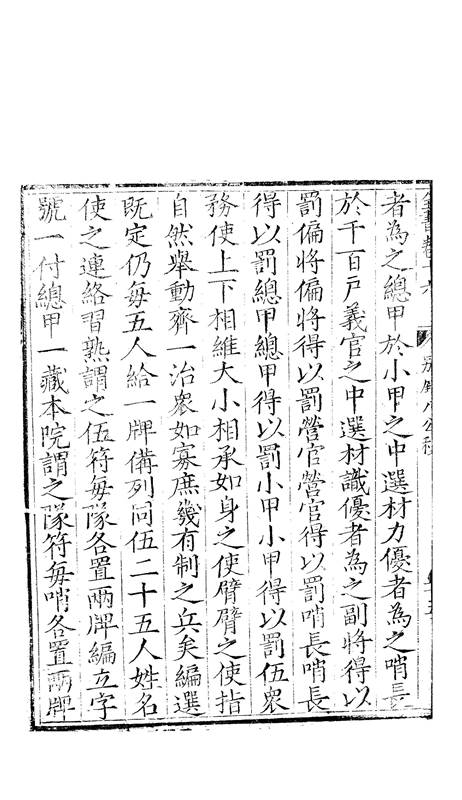 全書卷十六 別錄八公移
者為之總甲於小甲之中選材力優者為之哨長
於千百戶義官之中選材識優者為之副將得以
罰偏將偏將得以罰營官營官得以罰哨長哨長
得以罰總甲總甲得以罰小甲小甲得以罰伍衆
務使上下相維大小相承如身之使臂臂之使指
自然舉動齊一治衆如寡庶幾有制之兵矣編選
既定仍每五人給一牌備列同伍二十五人姓名
使之連絡習熟謂之伍符每隊各置兩牌編立字
號一付總甲一藏本院謂之隊符每哨各置兩牌